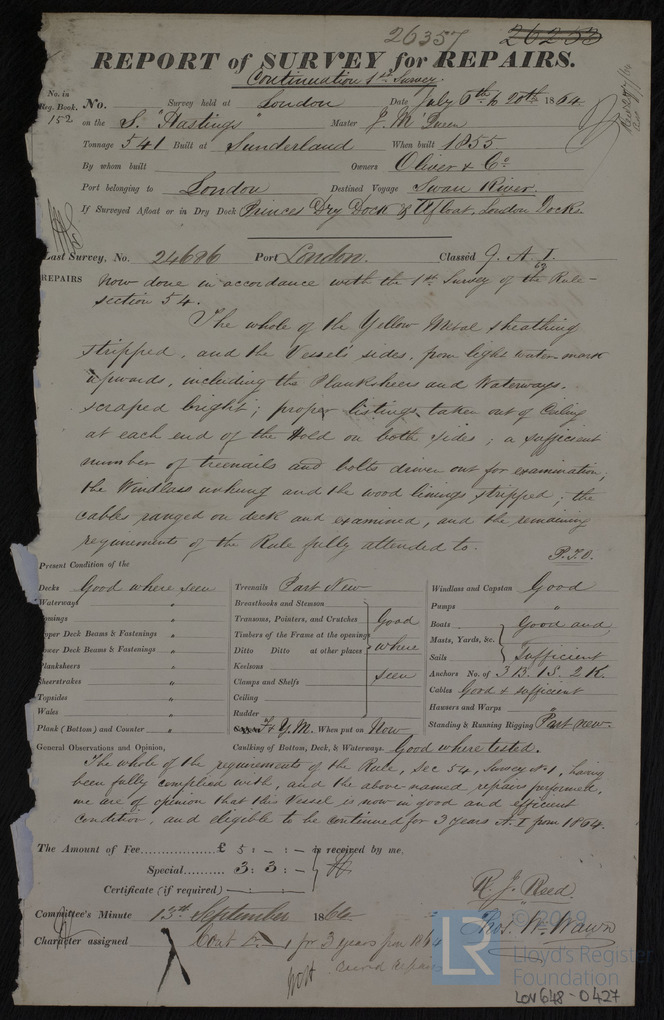 26357 26253
REPORT of SURVEY for REPAIRS.
Continuation 1st Survey.
No. in Reg. Book. No. Survey held at London Date July 6th to 20th 1864
152 on the S. "Hastings" Master J. McQueen
Tonnage 541 Built at Sunderland When built 1855
By whom built Owners Oliver & Co
Port belonging to London Destined Voyage Swan River.
If Surveyed Afloat or in Dry Dock Princes Dry Dock & Afloat, London Docks.
Last Survey, No. 24686 Port London. Classed 9. A. 1.
REPAIRS now done in accordance with the 1st Survey of the Rule-
section 54.
The whole of the Yellow Metal sheathing
stripped, and the Vessel's sides, from light water mark
upwards, including the Planksheers and Waterways,
scraped bright; proper listings taken out of Ceiling
at each end of the Hold on both sides; a sufficient
number of treenails and bolts driven out for examination;
the Windlass unhung and the wood linings stripped; the
cables ranged on deck and examined, and the remaining
requirements of the Rule fully attended to.
P.T.O.
Present Condition of the
Decks Good where seen
Waterways "
Comings "
Upper Deck Beams & Fastenings "
Lower Deck Beams & Fastenings "
Planksheers "
Sheerstrakes "
Topsides "
Wales "
Plank (Bottom) and Counter "
Treenails Part New
Breasthooks and Stemson
Transoms, Pointers, and Crutches Good
Timbers of the Frame at the openings
Ditto Ditto at other places where
Keelsons
Clamps and Shelfs seen
Ceiling
Rudder
& Y.M. When put on Now
Caulking of Bottom, Deck, & Waterways. Good where tested.
Windlass and Capstan Good
Pumps "
Boats Good and
Masts, Yards, &c.
Sails Sufficient
Anchors No. of 3 B. 1 S. 2 K.
Cables Good & sufficient
Hawsers and Warps "
Standing & Running Rigging Part new.
General Observations and Opinion,
The whole of the requirements of the Rule, sec 54, Survey No 1, having
been fully complied with, and the above-named repairs performed,
we are of opinion that this Vessel is now in good and efficient
condition, and eligible to be continued for 3 years A.1 from 1864.
The Amount of Fee £ 5 : - : - is received by me,
Special 3 : 3 : -
Certificate (if required) : :
R. J. Reed
Thos. W. Wawn
Committee's Minute 13th September 1864
Character assigned Cont A 1 for 3 years from 1864
© 2019
LR
Lloyd's Register
Foundation
LON648-0427